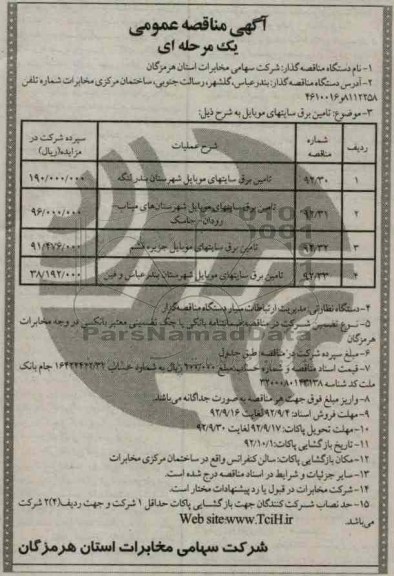 آگهی مناقصه عمومی
یک مرحله ای
۱- نام دستگاه مناقصه گذار: شرکت سهامی مخابرات استان هرمزگان
۲- آدرس دستگاه مناقصه گذار: بندرعباس، گلشهر، رسالت جنوبی، ساختمان مرکزی مخابرات شماره تلفن
۸۱۱۲۲۵۸و۴۶۱۰۰۱۶
۳- موضوع: تامین برق سایتهای موبایل به شرح ذیل:
ردیف شماره مناقصه شرح عملیات سپرده شرکت در مزایده(ریال)
۱ ۹۲/۳۰ تامین برق سایتهای موبایل شهرستان بندرلنگه ۱۹۰/۰۰۰/۰۰۰
۲ ۹۲/۳۱ تامین برق سایتهای موبایل شهرستان‌های میناب- رودان-جاسک ۹۶/۰۰۰/۰۰۰
۳ ۹۲/۳۲ تامین برق سایتهای موبایل جزیره قشم ۹۱/۴۷۶/۰۰۰
۴ ۹۲/۳۳ تامین برق سایتهای موبایل شهرستان بندرعباس و فین ۳۸/۱۹۲/۰۰۰
۴- دستگاه نظارتی: مدیریت ارتباطات سیار دستگاه مناقصه‌گزار
۵- نوع تضمین شرکت در مناقصه: ضمانتنامه بانکی یا چک تضمینی معتبر بانکی در وجه مخابرات
هرمزگان
۶- مبلغ سپرده شرکت در مناقصه: طبق جدول
۷- قیمت اسناد مناقصه و شماره حساب: مبلغ ریال به شماره حساب جام بانک
ملت کد شناسه
۸- واریز مبلغ فوق جهت هر مناقصه به صورت جداگانه می‌باشد.
۹- مهلت فروش اسناد: ۹۲/۹/۴ لغایت ۹۲/۹/۱۶
۱۰- مهلت تحویل پاکات: ۹۲/۹/۱۷ لغایت ۹۲/۹/۳۰
۱۱- تاریخ بازگشایی پاکات: ۹۲/۱۰/۱
۱۲- مکان بازگشایی پاکات: سالن کنفرانس واقع در ساختمان مرکزی مخابرات
۱۳- سایر جزئیات و شرایط در اسناد مناقصه درج شده است.
۱۴- شرکت مخابرات در قبول یا رد پیشنهادات مختار است.
۱۵- حد نصاب شرکت کنندگان جهت بازگشایی پاکات حداقل ۱ شرکت و جهت ردیف(۴) ۲ شرکت
می‌باشد. Web site:www.TciH.ir
شرکت سهامی مخابرات استان هرمزگان
ParsNamadData